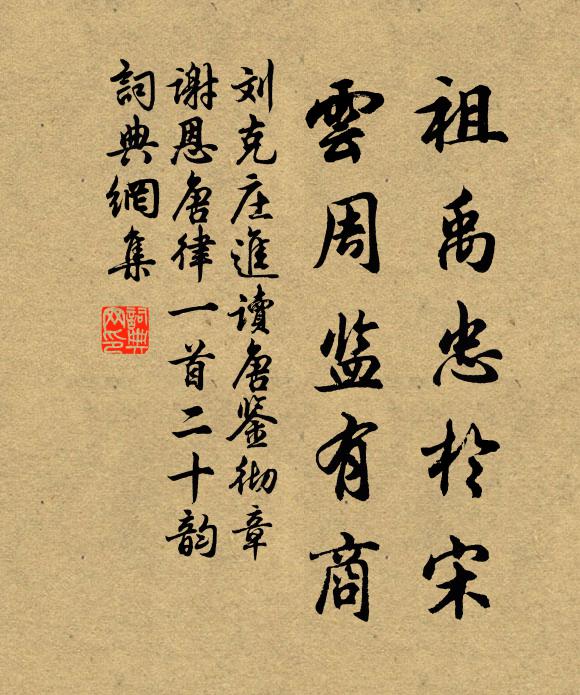 祖禹忠於宋
雲周监有商
刘克庄進讀唐鉴彻章
谢恩唐律一首二十韵
詞典網集
詞典
网印